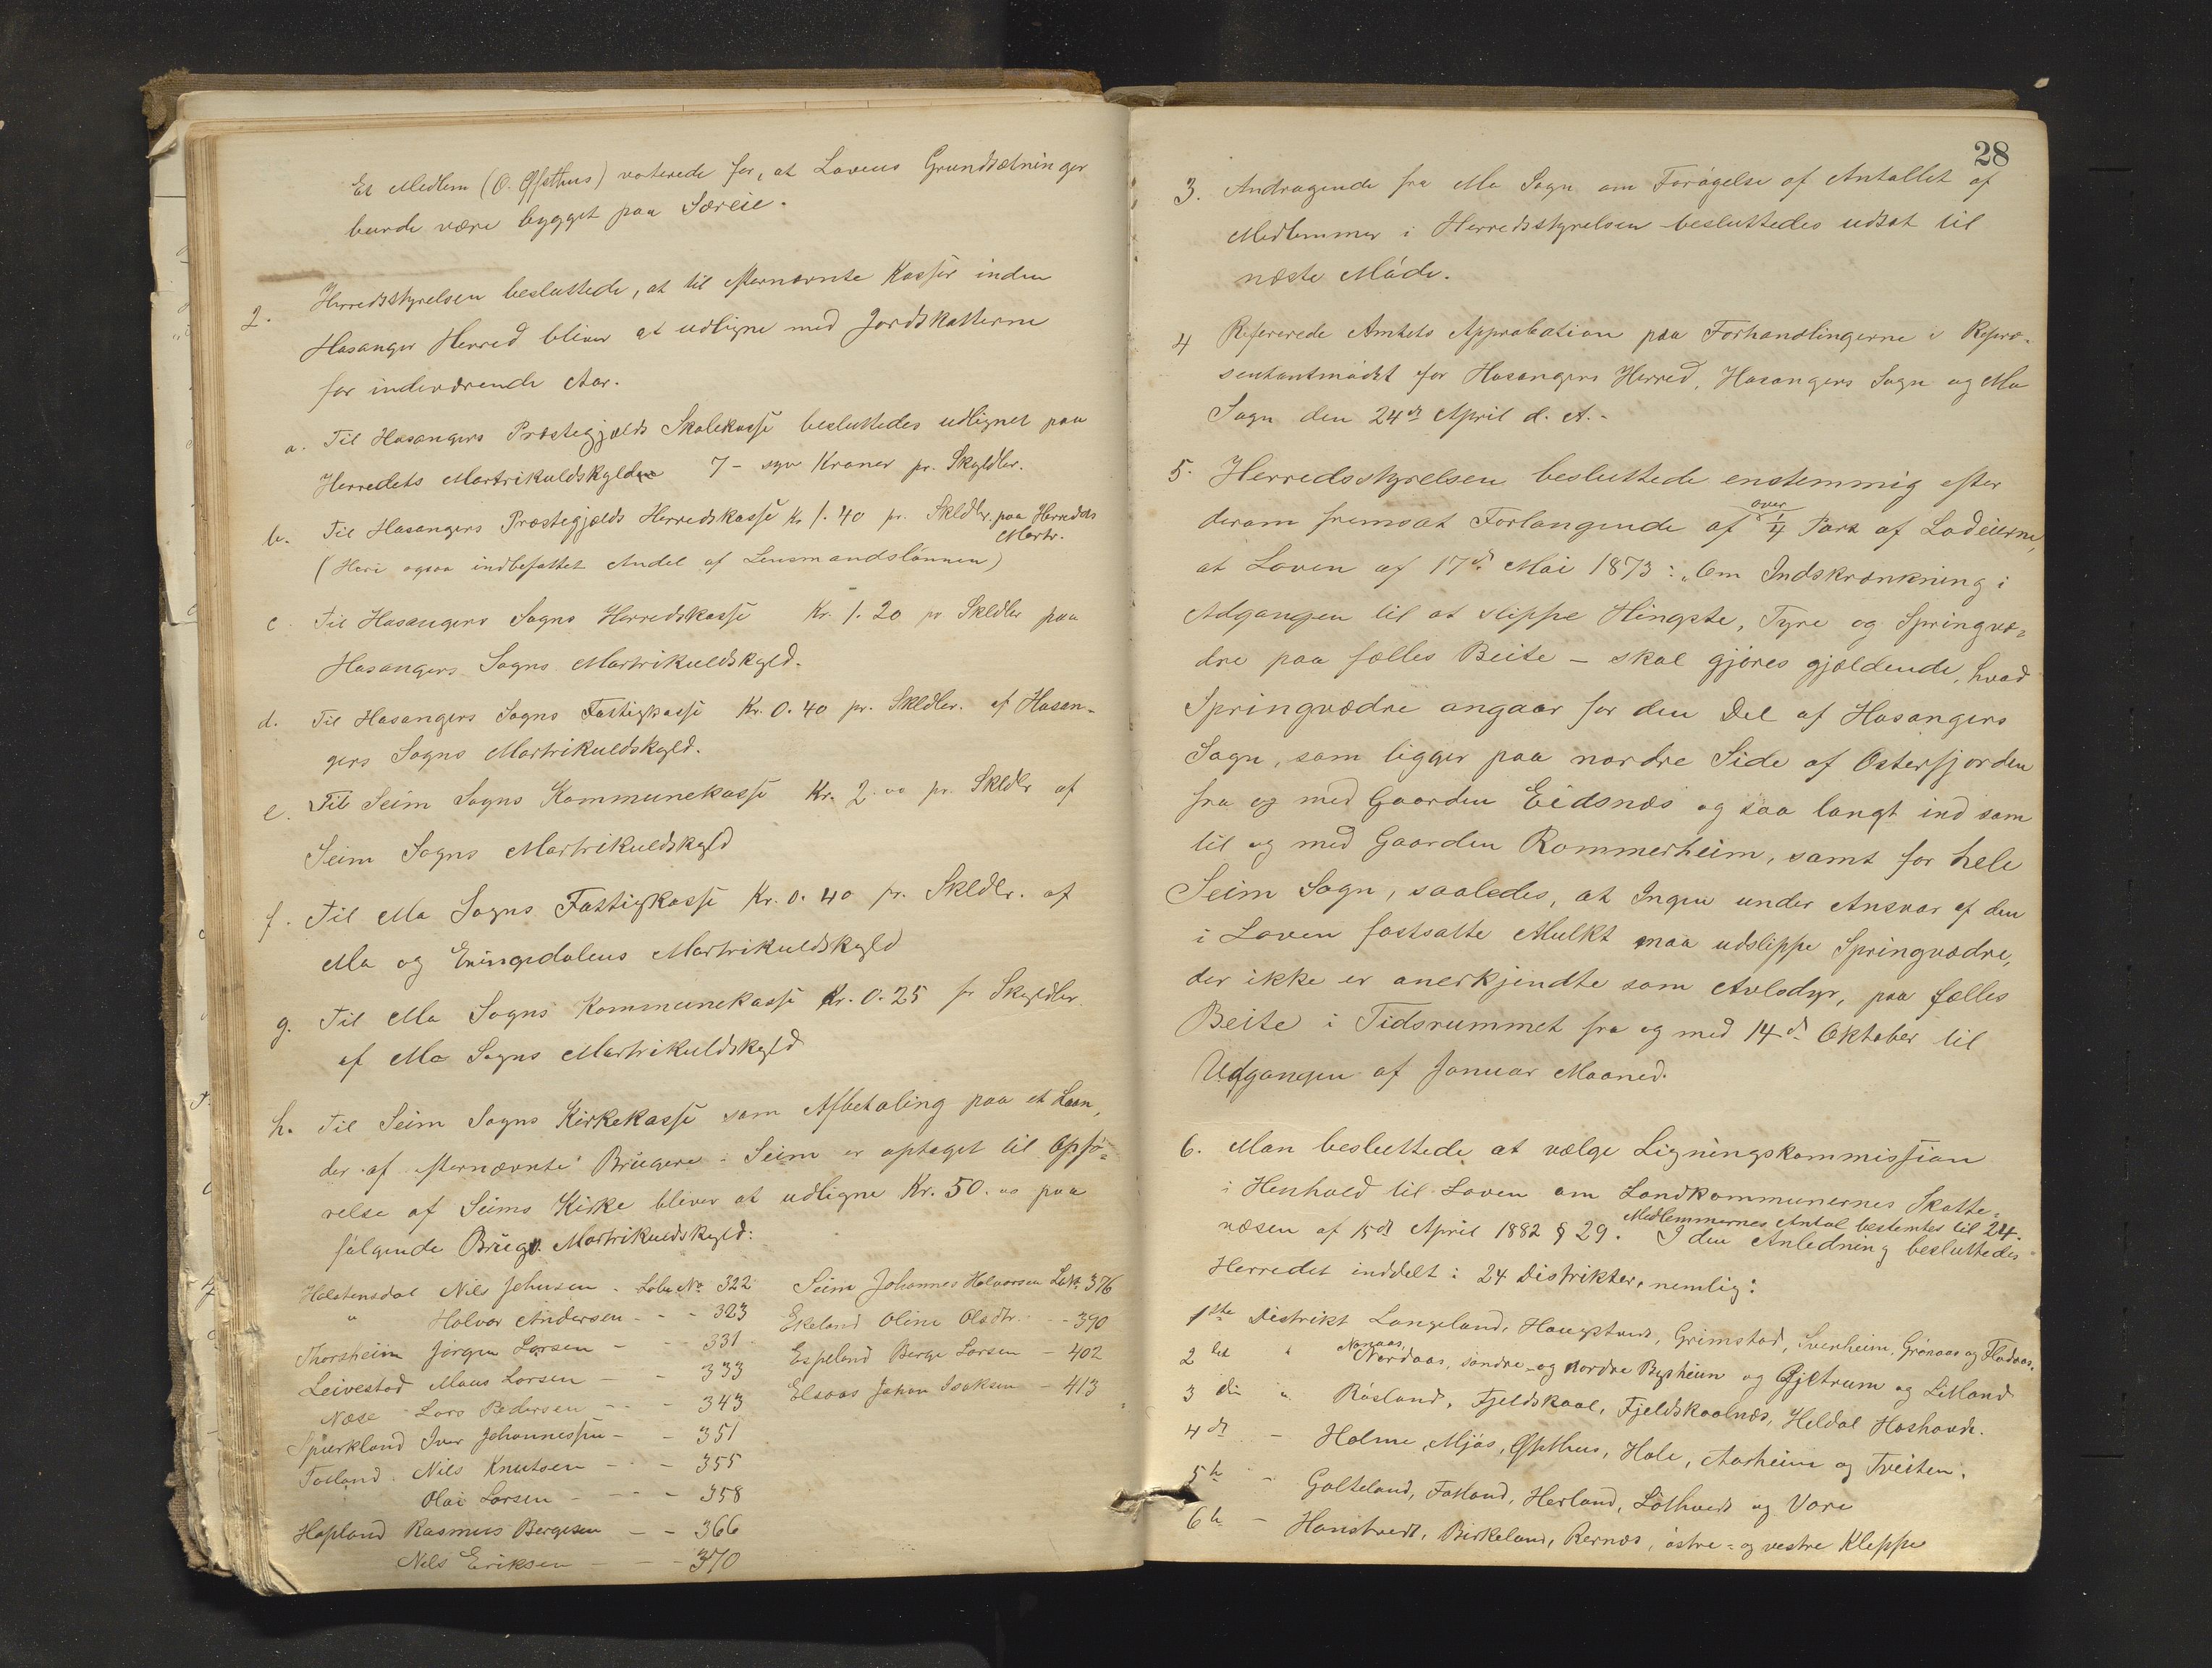 Et Medlem (O. Øpsthus) voterede for, at Lovens Grundsætninger
burde være bygget paa Særeie.
2. Herredsstyrelsen besluttede, at til efternævnte Kasser inden
Hosanger Herred bliver at udligne med Jordskatterne
for indeværende Aar.
a. Til Hosangers Præstegjælds Skolekasse besluttedes udlignet paa
Herredets Martrikulskylden 7 - syv Kroner pr. Skyldlr.
b. Til Hosangers Præstegjælds Herredskasse Kr 1.40 pr. Skldlr. paa Herredets
Martr.
(Heri ogsaa indbefattet Andel af Lensmandslönnen)
c. Til Hosangers Sogns Herredskasse Kr. 1.20 pr Skldlr paa
Hosangers Sogns Martrikuldskyld.
d. Til Hosangers Sogns Fattigkasse Kr. 0.40 pr. Skldlr. af Hosan-
gers Sogns Martrikuldskyld.
e. Til Seim Sogns Kommunekasse Kr. 2.00 pr. Skldlr af
Seim Sogns Martrikuldskyld
f. Til Mo Sogns Fattigkasse Kr. 0.40 pr. Skldlr. af
Mo og Eningdalens Martrikuldskyld
g. Til Mo Sogns Kommunekasse Kr. 0.25 pr Skyldlr.
af Mo Sogns Martrikuldskyld
h. Til Seim Sogns Kirkekasse som Afbetaling paa et Laan,
der af efternævnte Brugere i Seim er optaget til Opfö-
relse af Seims Kirke bliver at udligne Kr. 50.00 paa
fölgende Brugs Martrikuldskyld:
Holstensdal Nils Johnsen - Löbe No 322 Seim Johannes Halvorsen L.No 376
" Halvor Andersen - - 323 Ekeland Oline Olsdtr. - - 390
Thorsheim Jörgen Larsen - - 331 Espeland Berge Larsen - 402
Leivestad Mons Larsen - - 333 Elsaas Johan Isaksen - 413
Næse Lars Pedersen - - 343
Spurkland Iver Johannessen - - 351
Toeland Nils Knutsen - - 355
Olai Larsen - - - 358
Hopland Rasmus Bergesen - - 366
Nils Eriksen - - - 370
28
3. Andragende fra Mo Sogn om Forögelse af Antallet af
Medlemmer i Herredsstyrelsen besluttedes udsat til
næste Möde.
4 Refererede Amtets Approbation paa Forhandlingerne i Repræ-
sentantmödet for Hosangers Herred, Hosangers Sogn og Mo
Sogn den 24de April d. A.-
5. Herredsstyrelsen besluttede enstemmig efter
derom fremsat Forlangende af over 1/4 Part af Lodeierne,
at Loven af 17de Mai 1873: "Om Indskrænkning i
Adgangen til at slippe Hingste, Tyre og Springvæ-
dre paa fælles Beite - skal gjöres gjældende, hvad
Springvædre angaar for den Del af Hosangers
Sogn, som ligger paa nordre Side af Osterfjorden
fra og med Gaarden Eidsnæs og saa langt ind som
til og med Gaarden Rommerheim, samt for hele
Seim Sogn, saaledes, at Ingen under Ansvar af den
i Loven fastsatte Mulkt maa udslippe Springvædre,
der ikke er anerkjendte som Avlsdyr, paa fælles
Beite i Tidsrummet fra og med 14de Oktober til
Udgangen af Januar Maaned.
6. Man besluttede at vælge Ligningskommission
i Henhold til Loven om Landkommunernes Skatte-
væsen af 15de April 1882 § 29. Medlemmernes Antal bestemtes til 24.
I den Anledning besluttedes
Herredet inddelt i 24 Distrikter, nemlig:
1ste Distrikt Langeland, Haugstvedt, Grimstad, Svenheim, Grönaas og Flodaas.
2det " Nonaas, Nordaas, söndre- og nordre Bysheim og Øjetrum og Litland
3die " Rösland, Fjeldskaal, Fjeldskaalnæs, Heldal Hoshovde.
4de - Holme, Mjös, Øpsthus, Hole, Aarheim og Tveiten.
5te - Galteland, Fatland, Herland, Löthvedt og Vare
6te - Hanstvedt, Birkeland, Rernæs, östre- og vestre Kleppe